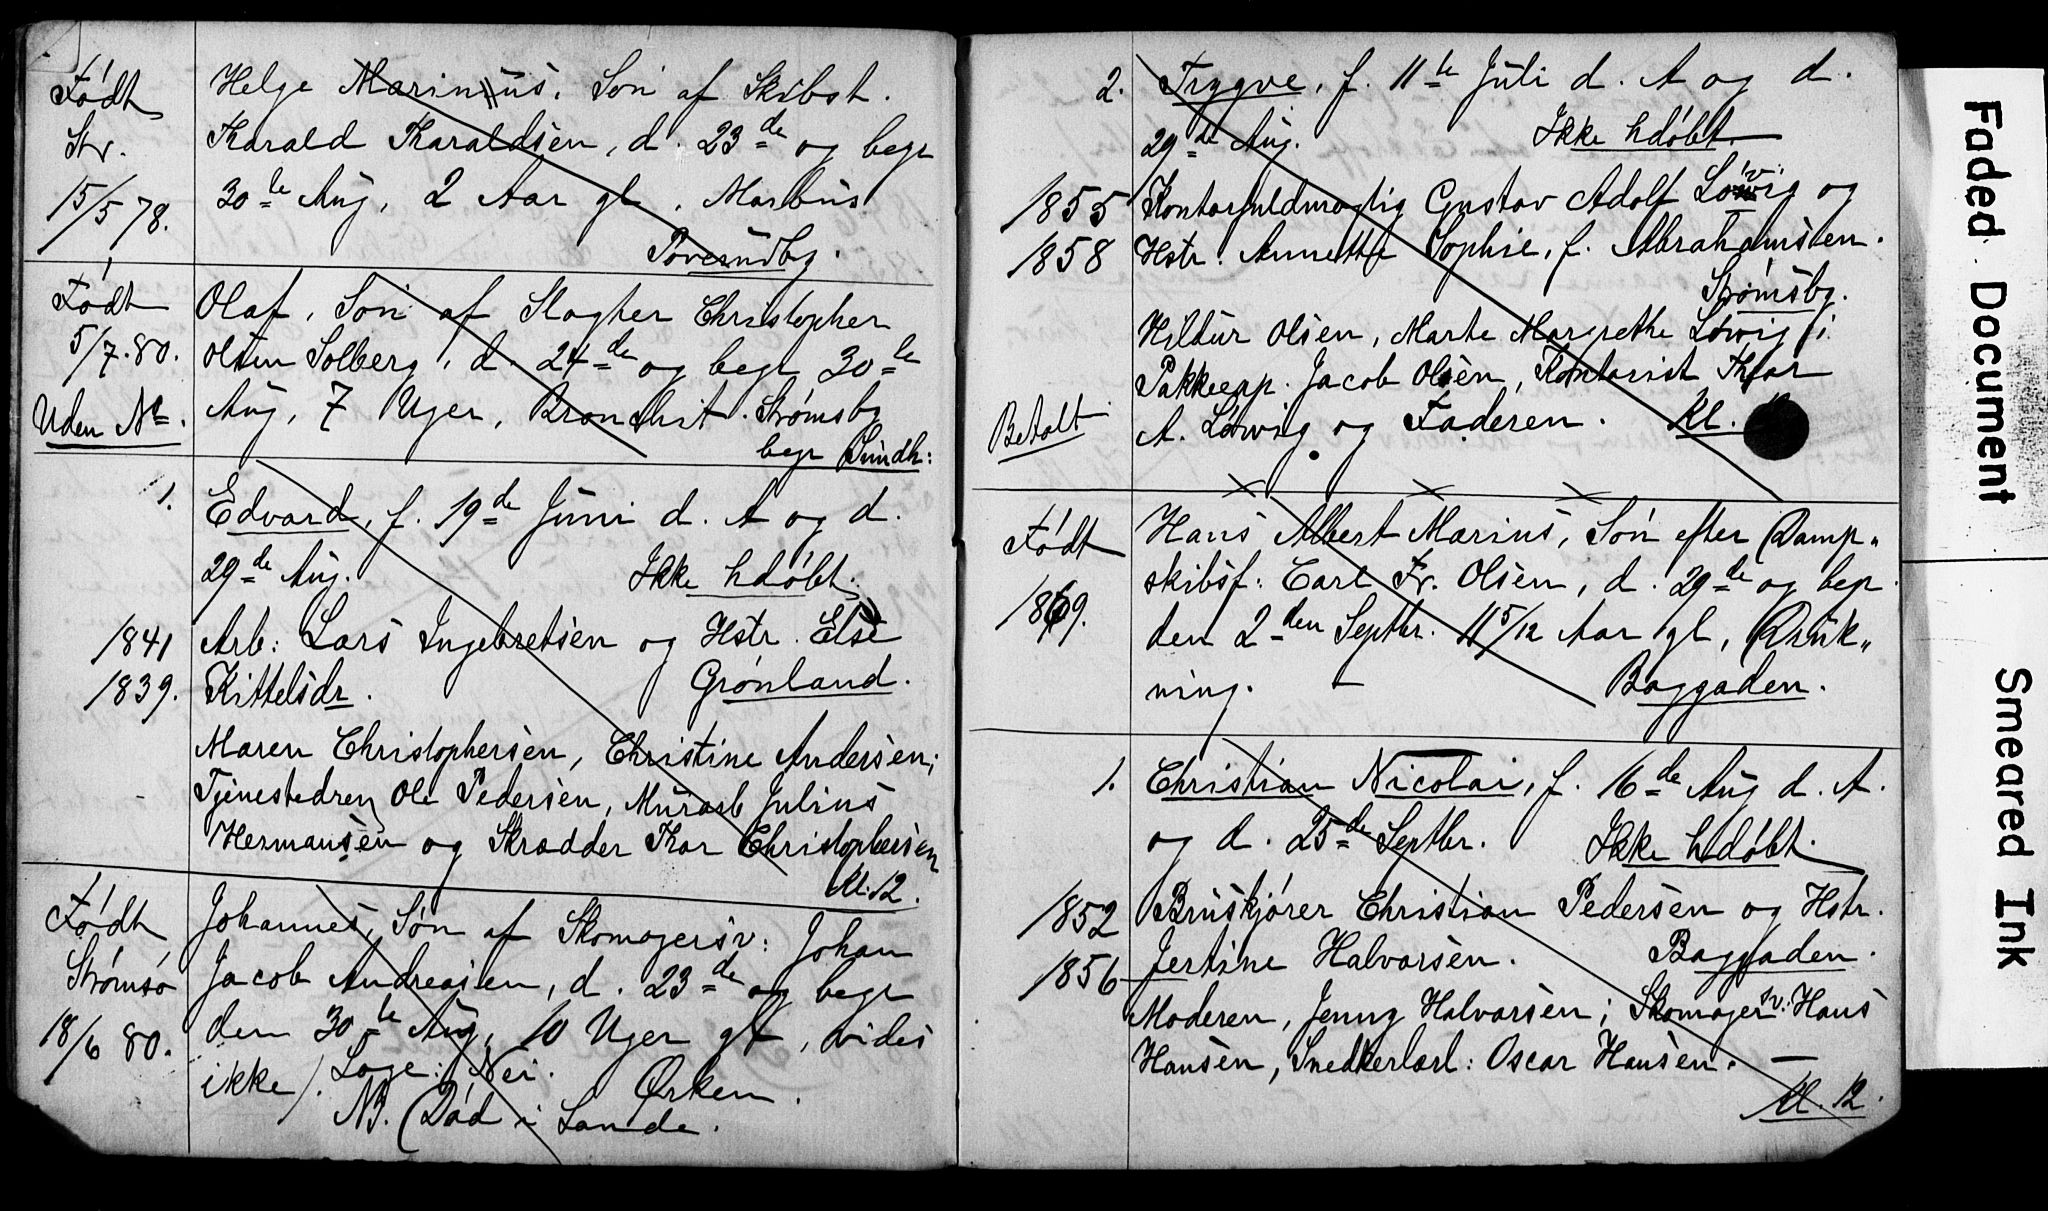 Født
Str.
15/5 78.
Helge Marinius, Søn af Skibst.
Harald Haraldsen, d. 23de og begr
30te Aug, 2 Aar gl, Morbus
Født
5/7.80.
Uden No.
Olaf, Søn af Slagter Christopher
Olsen Solberg, d. 24de og begr 30te
Aug, 7 Uger, Bronchit. Strømsby
begr Sundh:
1.
Edvard, f. 19de Juni d. A og d.
29de Aug. Ikke hdøbt.
1841
Arb: Lars Ingebretsen og Hstr. Else
1839.
Kittelsdr. Grønland.
Maren Christophersen, Christine Andersen;
Tjenestedreng Ole Pedersen, Murarb Julius
Hermansen og Skrædder Thor Christophersen
Kl. 12.
Født
Strømsø
18/6 80.
Johannes, Søn af Skomagersv: Johan
Jacob Andreasen, d. 23de og begr
den 30te Aug, 10 Uger gl, vides
ikke). Læge: Nei. Ørken.
NB. Død i Sande.
2.
Trygve, f. 11te Juli d. A og d.
29de Aug. Ikke hdøbt.
1855
Kontorfuldmægtig Gustav Adolf Løvig og
1858
Hstr. Annette Sophie, f. Abrahamsen.
Strømsby.
Hildur Olsen, Marte Margrethe Løwig;
Pakkeexp. Jacob Olsen, Kontorist Thor
Betalt
A. Löwig og Faderen. Kl.
Født
1869.
Hans Albert Marius, Søn efter Damp-
skibsf: Carl Fr. Olsen, d. 29de og begr
den 2den Septbr. 11 5/12 Aar gl, Druk-
ning. Baggaden.
1.
Christian Nicolai, f. 16de Aug d. A.
og d. 25de Septbr. Ikke hdøbt.
1852
Bruskjører Christian Pedersen og Hstr.
1856
Jertine Halvorsen. Baggaden.
Moderen, Jenny Halvorsen; Skomagersv: Hans
Hansen, Snedkerlærl: Oscar Hansen. —
Kl. 12.
Faded Document
Smeared Ink